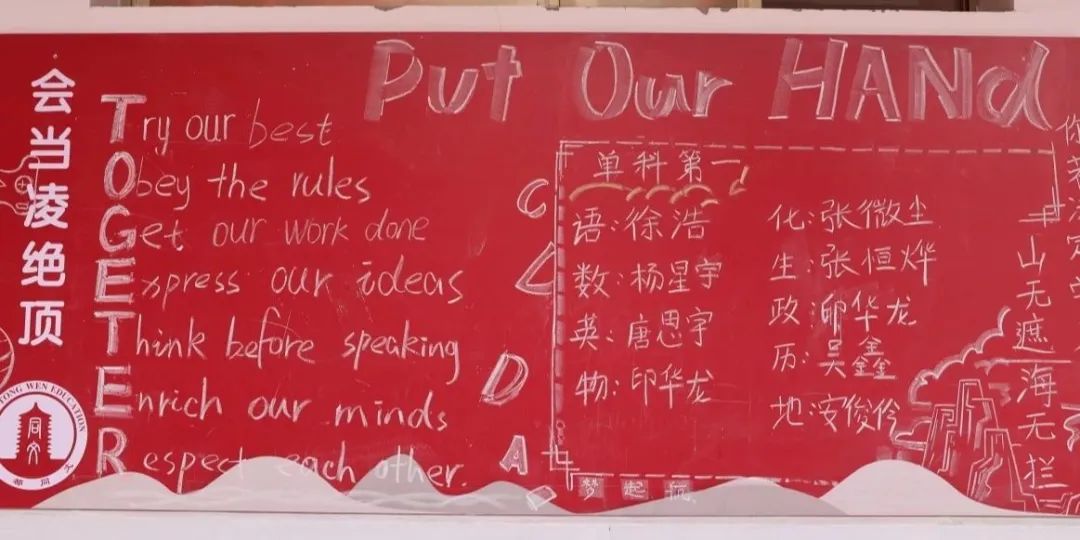 会当凌绝顶
Put Our HANd
Try our best
Obey the rules
Get our work done
Express our ideas
Think before speaking
Enrich our minds
Respect each other.
C
L
D
A
单科第一!
语:徐浩
数:杨星宇
英:唐思宇
物:印华龙
化:张微尘
生:张恒烨
政:印华龙
历:吴鑫鑫
地:安俊伶
梦 起
山无遮
海无拦
TONG WEN EDUCATION
同文